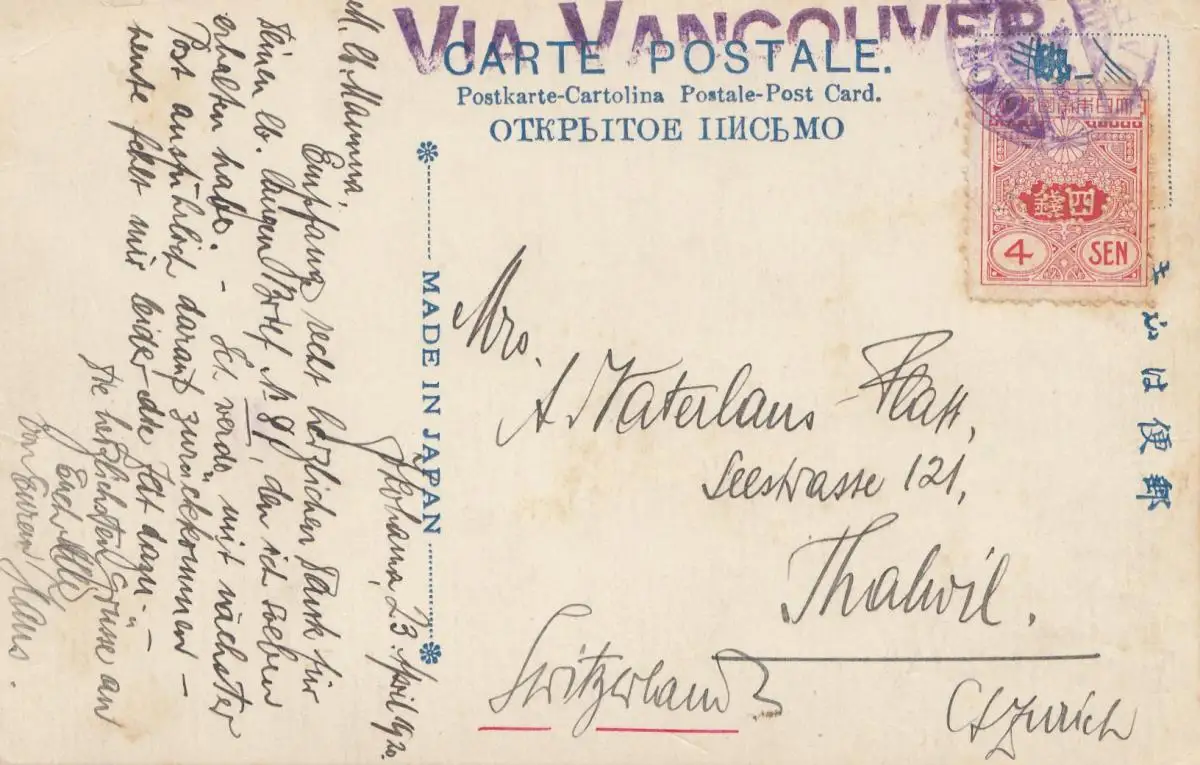 VIA VANCOUVER
CARTE POSTALE.
Postkarte-Cartolina Postale-Post Card.
ОТКРЫТОЕ ПИСЬМО
大日本帝國郵便
四錢
4 SEN
きかは便郵
MADE IN JAPAN
Yokohama, 23. April 1920.
M. lb. Mamma,
Empfange recht herzlichen Dank für
Deinen lb. langen Brief No 8, den ich soeben
erhalten habe. - Ich werde mit nächster
Post ausführlich darauf zurückkommen -
heute fehlt mir leider die Zeit dazu. -
Die herzlichsten Grüsse an
Euch Alle
von Eurem Hans.
Mrs.
A Naterlaus-Platt,
Seestrasse 121,
Thalwil.
Ct Zürich
Switzerland